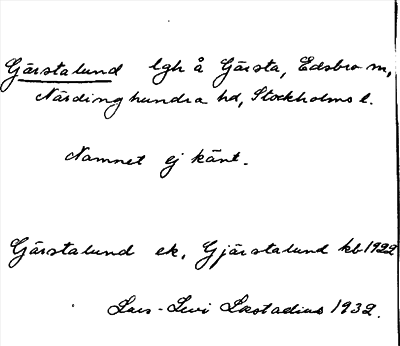 Gärstalund lgh å Gärsta, Edsbro sn,
Närdinghundra hd, Stockholms l.
Namnet ej känt.
Gärstalund ek, Gjärstalund kb 1922
Lars-Levi Læstadius 1932.